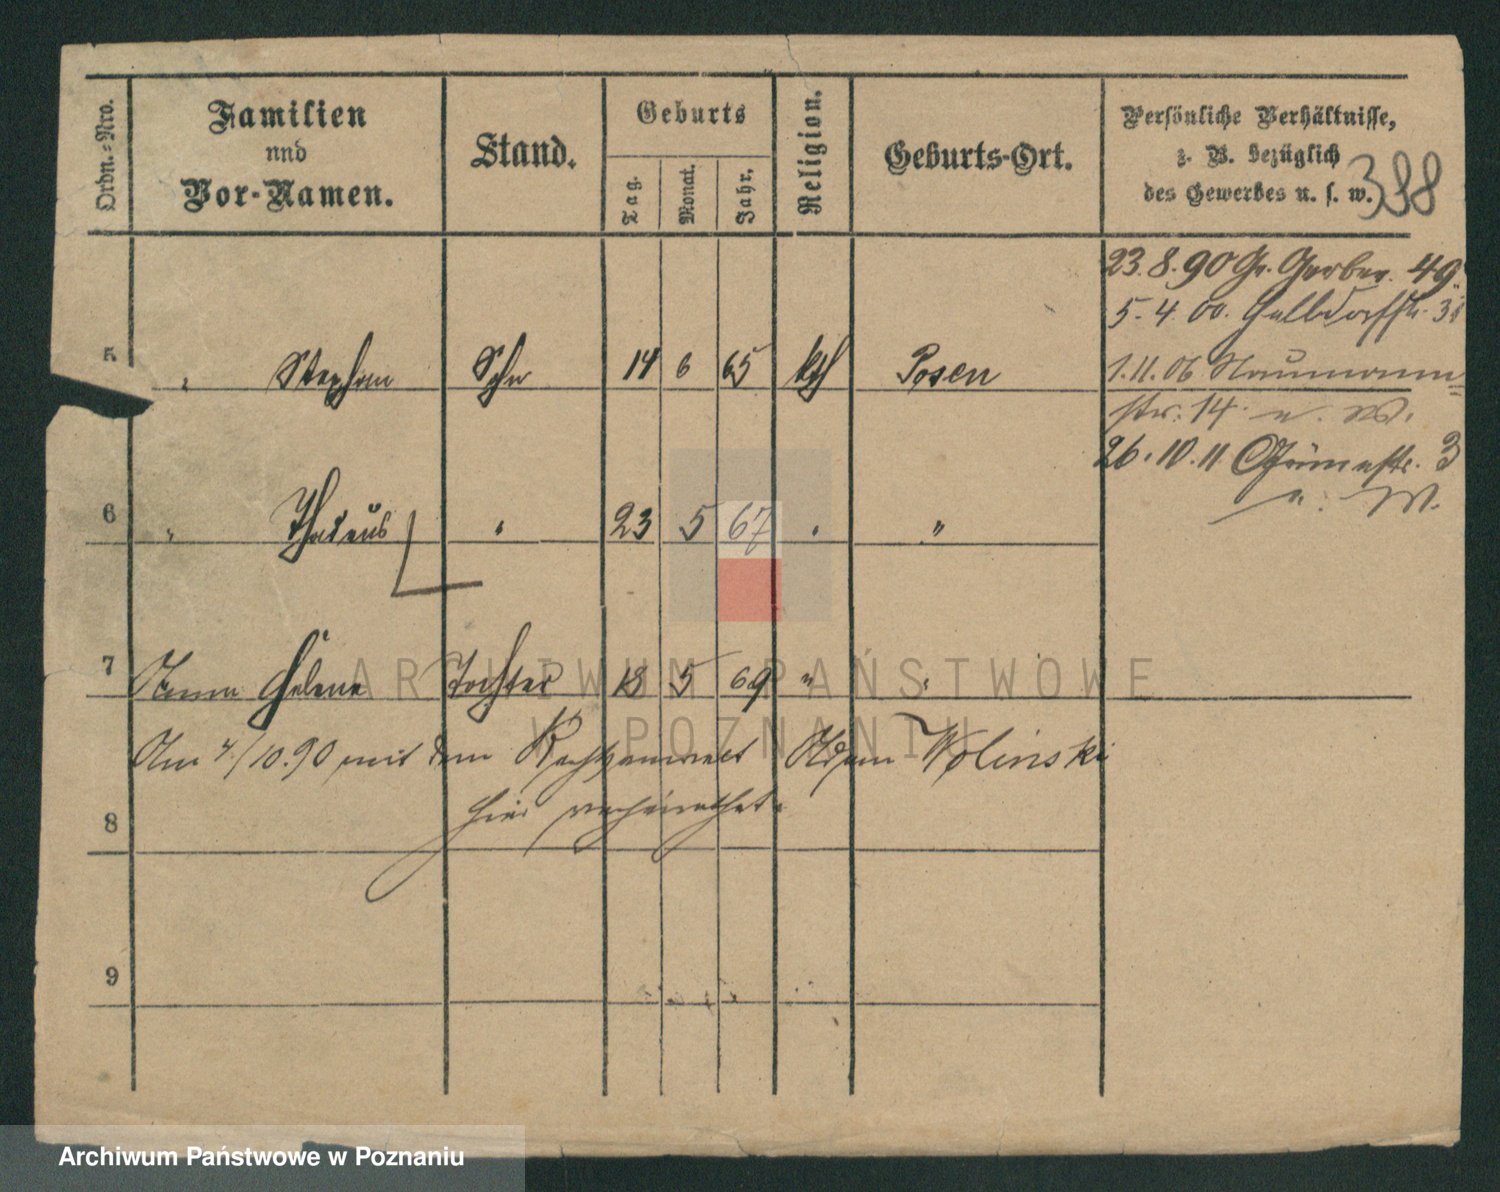 Ordn.=Nro.
Familien
und
Vor-Namen.
Stand.
Geburts
Tag.
Monat.
Jahr.
Religion.
Geburts-Ort.
Persönliche Verhältnisse,
z. B. bezüglich
des Gewerbes u. s. w.
388
23.8.90 Gr. Gerber. 49.
5.4.00. Halbdorfstr. 31
5 " Stephan Sohn 14 6 65 kth Posen
1.11.06 Naumann
str. 14. u. W.
26.10.11 Grünestr. 3
u. W.
6 " Thadeus " 23 5 67 " "
7 Anna Helene Tochter 18 5 69 " "
Am 4/10.90 mit dem Rechtsanwalt Adam Wolinski
8 hier verheirathet.
9
ARCHIWUM PAŃSTWOWE
W POZNANIU
Archiwum Państwowe w Poznaniu